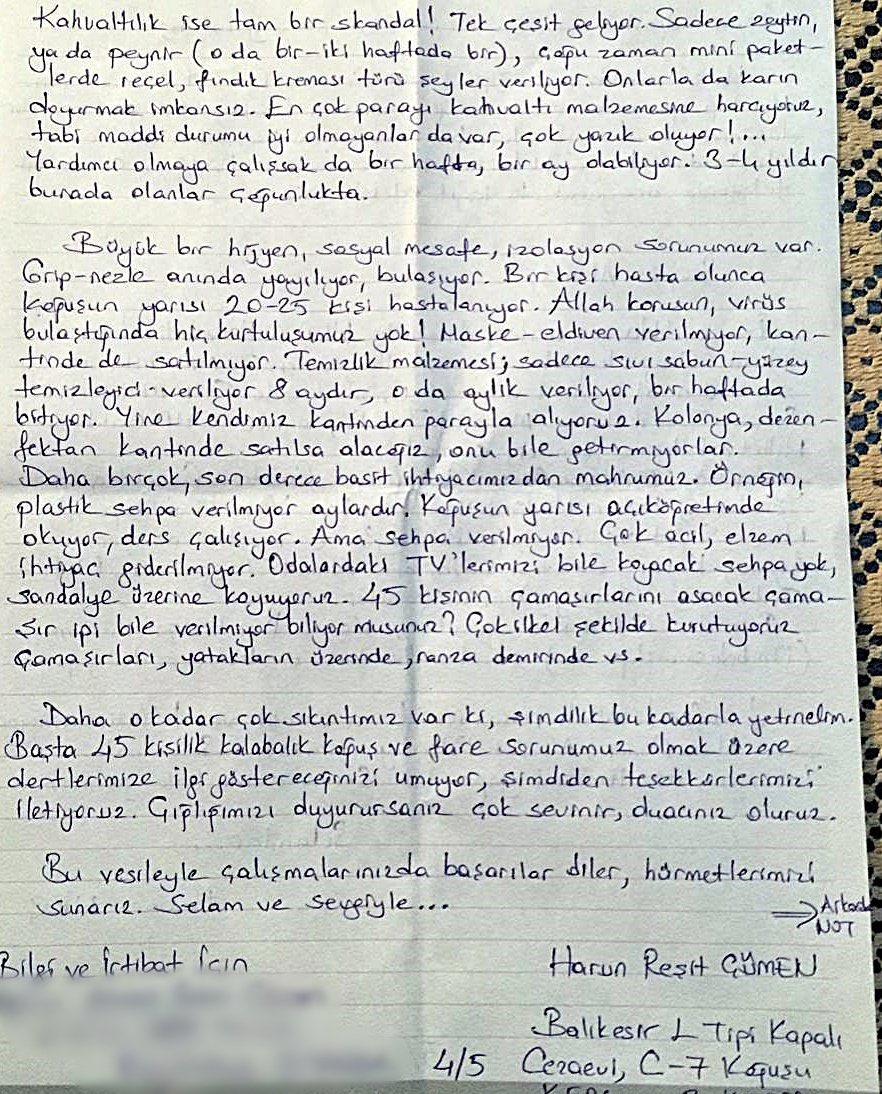 Kahvaltılık ise tam bir skandal! Tek çeşit geliyor. Sadece zeytin,
ya da peynir (o da bir-iki haftada bir), çoğu zaman mini paket-
lerde reçel, fındık kreması türü şeyler veriliyor. Onlarla da karın
doyurmak imkansız. En çok parayı kahvaltı malzemesine harcıyoruz,
tabi maddi durumu iyi olmayanlar da var, çok yazık oluyor!...
Yardımcı olmaya çalışsak da bir hafta, bir ay olabiliyor. 3-4 yıldır
burada olanlar çoğunlukta.
Büyük bir hijyen, sosyal mesafe, izolasyon sorunumuz var.
Grip-nezle anında yayılıyor, bulaşıyor. Bir kişi hasta olunca
koğuşun yarısı 20-25 kişi hastalanıyor. Allah korusun, virüs
bulaştığında hiç kurtuluşumuz yok! Maske-eldiven verilmiyor, kan-
tinde de satılmıyor. Temizlik malzemesi; sadece sıvı sabun-yüzey
temizleyici veriliyor 8 aydır, o da aylık veriliyor, bir haftada
bitiyor. Yine kendimiz kantinden parayla alıyoruz. Kolonya, dezen-
fektan kantinde satılsa alacağız, onu bile getirmiyorlar.
Daha birçok, son derece basit ihtiyacımızdan mahrumuz. Örneğin,
plastik sehpa verilmiyor aylardır. Koğuşun yarısı açıköğretimde
okuyor, ders çalışıyor. Ama sehpa verilmiyor. Çok acil, elzem
ihtiyaç giderilmiyor. Odalardaki TV'lerimizi bile koyacak sehpa yok,
sandalye üzerine koyuyoruz. 45 kişinin çamaşırlarını asacak çama-
şır ipi bile verilmiyor biliyor musunuz? Çok ilkel şekilde kurutuyoruz
çamaşırları, yatakların üzerinde, ranza demirinde vs.
Daha o kadar çok sıkıntımız var ki, şimdilik bu kadarla yetinelim.
Başta 45 kişilik kalabalık koğuş ve fare sorunumuz olmak üzere
dertlerimize ilgi göstereceğinizi umuyor, şimdiden teşekkürlerimizi
iletiyoruz. Çığlığımızı duyurursanız çok sevinir, duacınız oluruz.
Bu vesileyle çalışmalarınızda başarılar diler, hürmetlerimizi
sunarız. Selam ve sevgiyle...
⇒ Arkada
NOT
Bilgi ve İrtibat İçin
Harun Reşit ÇÜMEN
Balıkesir L Tipi Kapalı
4/5 Cezaevi, C-7 Koğuşu